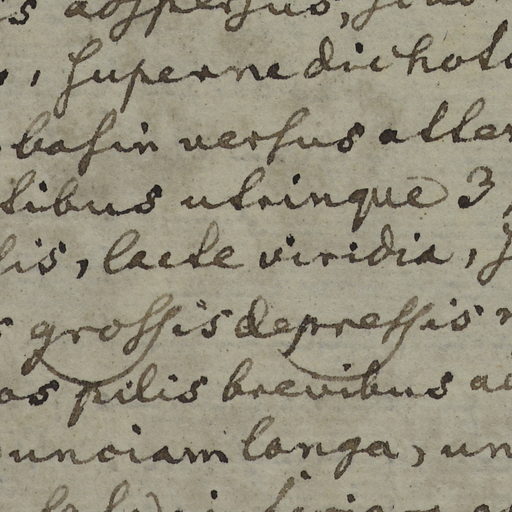 is adspersus,
, superne dichoto
basin versus alter
tibus utrinque 3,
lis, laete viridia,
s grossis depressis
as pilis brevibus
unciam longa, un